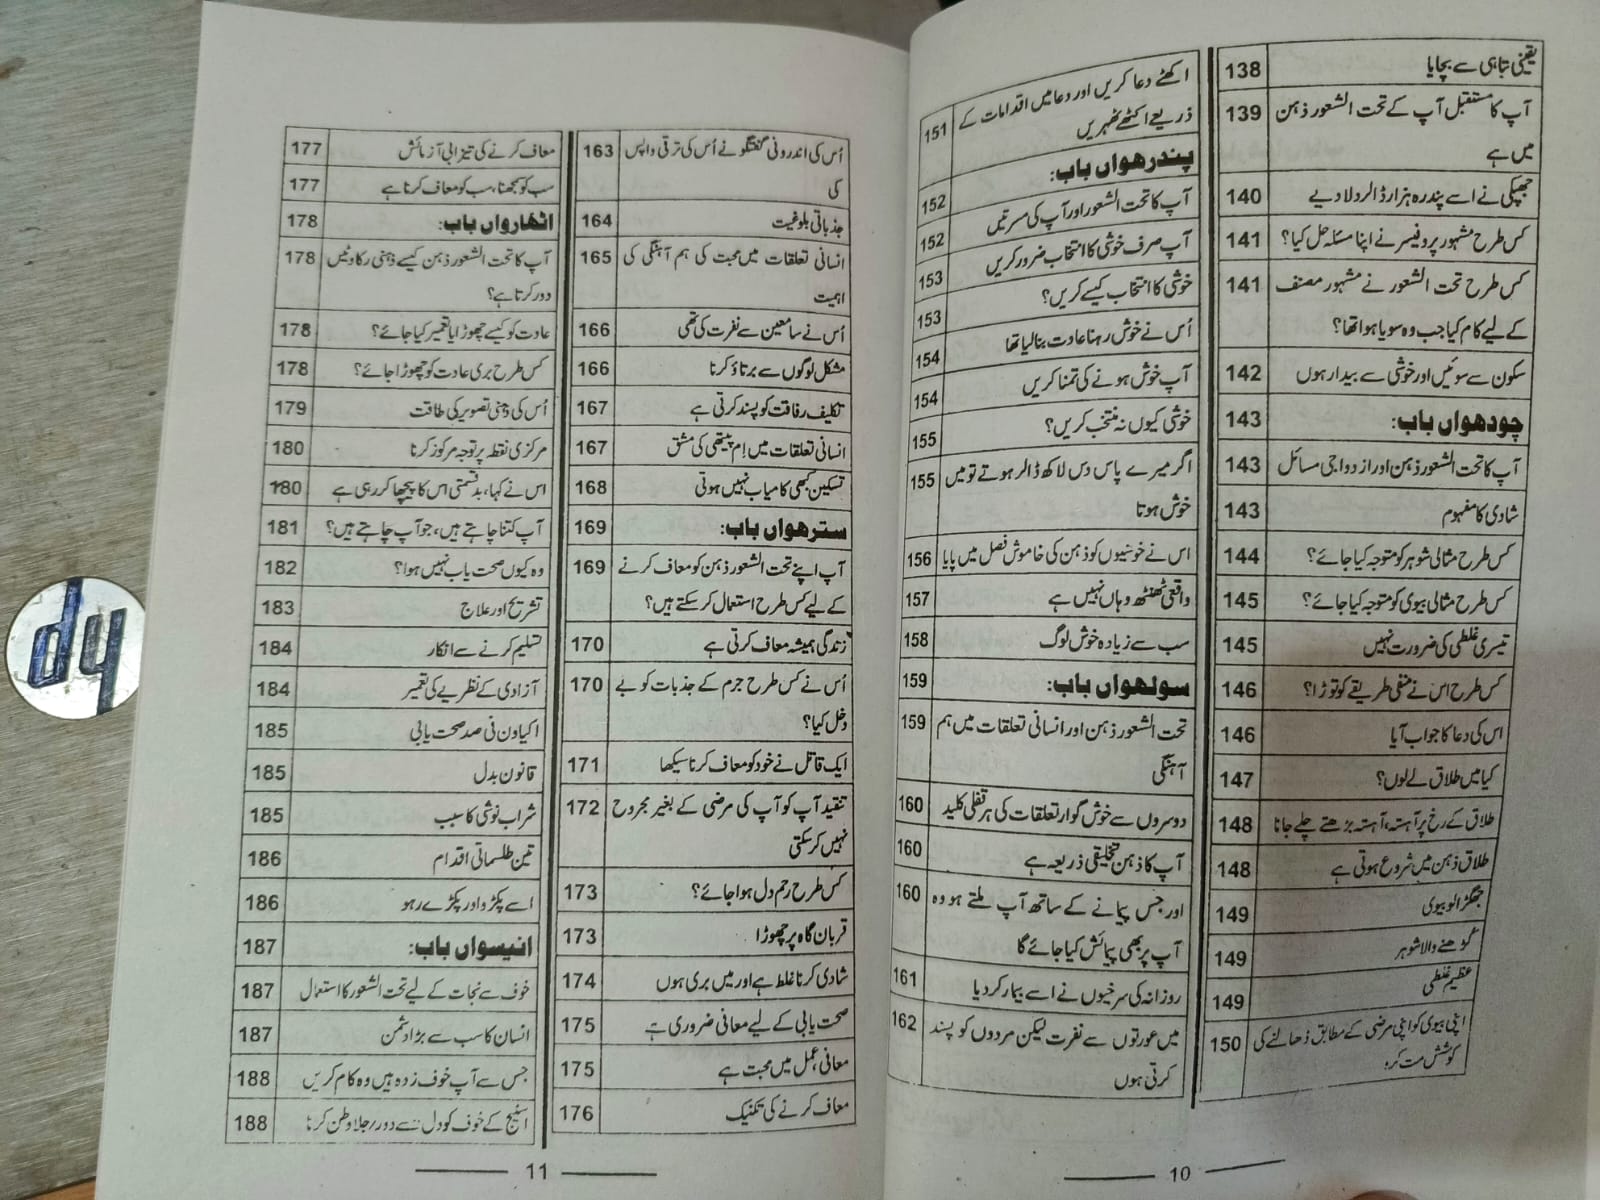 یقینی تباہی سے بچایا 138
آپ کا مستقبل آپ کے تحت الشعور ذہن 139
میں ہے
جھپکی نے اسے پندرہ ہزار ڈالر دلا دیے 140
کس طرح مشہور پروفیسر نے اپنا مسئلہ حل کیا؟ 141
کس طرح تحت الشعور نے مشہور مصنف 141
کے لیے کام کیا جب وہ سویا ہوا تھا؟
سکون سے سوئیں اور خوشی سے بیدار ہوں 142
چودھواں باب: 143
آپ کا تحت الشعور ذہن اور ازدواجی مسائل 143
شادی کا مفہوم 143
کس طرح مثالی شوہر کو متوجہ کیا جائے؟ 144
کس طرح مثالی بیوی کو متوجہ کیا جائے؟ 145
تیسری غلطی کی ضرورت نہیں 145
کس طرح اس نے منفی طریقے کو توڑا؟ 146
اس کی دعا کا جواب آیا 146
کیا میں طلاق لے لوں؟ 147
طلاق کے رخ پر آہستہ، آہستہ بڑھتے چلے جانا 148
طلاق ذہن میں شروع ہوتی ہے 148
جھگڑالو بیوی 149
کڑھنے والا شوہر 149
عظیم غلطی 149
اپنی بیوی کو اپنی مرضی کے مطابق ڈھالنے کی 150
کوشش مت کرو
اکٹھے دعا کریں اور دعا میں اقدامات کے 151
ذریعے اکٹھے ٹھہریں
پندرھواں باب: 152
آپ کا تحت الشعور اور آپ کی مسرتیں 152
آپ صرف خوشی کا انتخاب ضرور کریں 153
خوشی کا انتخاب کیسے کریں؟ 153
اُس نے خوش رہنا عادت بنا لیا تھا 154
آپ خوش ہونے کی تمنا کریں 154
خوشی کیوں نہ منتخب کریں؟ 155
اگر میرے پاس دس لاکھ ڈالر ہوتے تو میں 155
خوش ہوتا
اس نے خوشیوں کو ذہن کی خاموش فصل میں پایا 156
واقعی ٹھنٹھ وہاں نہیں ہے 157
سب سے زیادہ خوش لوگ 158
سولھواں باب: 159
تحت الشعور ذہن اور انسانی تعلقات میں ہم 159
آہنگی
دوسروں سے خوش گوار تعلقات کی ہر قفلی کلید 160
آپ کا ذہن تخلیقی ذریعہ ہے 160
اور جس پیمانے کے ساتھ آپ ملتے ہو وہ 160
آپ پر بھی پیمائش کیا جائے گا
روزانہ کی سرخیوں نے اسے بیمار کر دیا 161
میں عورتوں سے نفرت لیکن مردوں کو پسند 162
کرتی ہوں
10
اُس کی اندرونی گفتگو نے اُس کی ترقی واپس 163
کی
جذباتی بلوغیت 164
انسانی تعلقات میں محبت کی ہم آہنگی کی 165
اہمیت
اُس نے سامعین سے نفرت کی تھی 166
مشکل لوگوں سے برتاؤ کرنا 166
تکلیف رفاقت کو پسند کرتی ہے 167
انسانی تعلقات میں اِم پیتھی کی مشق 167
تسکین کبھی کامیاب نہیں ہوتی 168
سترھواں باب: 169
آپ اپنے تحت الشعور ذہن کو معاف کرنے 169
کے لیے کس طرح استعمال کر سکتے ہیں؟
زندگی ہمیشہ معاف کرتی ہے 170
اُس نے کس طرح جرم کے جذبات کو بے 170
دخل کیا؟
ایک قاتل نے خود کو معاف کرنا سیکھا 171
تنقید آپ کو آپ کی مرضی کے بغیر مجروح 172
نہیں کر سکتی
کس طرح رحم دل ہوا جائے؟ 173
قربان گاہ پر چھوڑا 173
شادی کرنا غلط ہے اور میں بری ہوں 174
صحت یابی کے لیے معافی ضروری ہے 175
معافی، عمل میں محبت ہے 175
معاف کرنے کی تکنیک 176
معاف کرنے کی تیزابی آزمائش 177
سب کو سمجھنا، سب کو معاف کرنا ہے 177
اٹھارواں باب: 178
آپ کا تحت الشعور ذہن کیسے ذہنی رکاوٹیں 178
دور کرتا ہے؟
عادت کو کیسے چھوڑا یا تعمیر کیا جائے؟ 178
کس طرح بری عادت کو چھوڑا جائے؟ 178
اُس کی ذہنی تصویر کی طاقت 179
مرکزی نقطہ پر توجہ مرکوز کرنا 180
اس نے کہا، بدقسمتی اس کا پیچھا کر رہی ہے 180
آپ کتنا چاہتے ہیں، جو آپ چاہتے ہیں؟ 181
وہ کیوں صحت یاب نہیں ہوا؟ 182
تشریح اور علاج 183
تسلیم کرنے سے انکار 184
آزادی کے نظریے کی تعمیر 184
اکیاون فی صد صحت یابی 185
قانون بدل 185
شراب نوشی کا سبب 185
تین طلسماتی اقدام 186
اسے پکڑو اور پکڑے رہو 186
انیسواں باب: 187
خوف سے نجات کے لیے تحت الشعور کا استعمال 187
انسان کا سب سے بڑا دشمن 187
جس سے آپ خوف زدہ ہیں وہ کام کریں 188
اسٹیج کے خوف کو دل سے دور/جلا وطن کرنا 188
11
dy